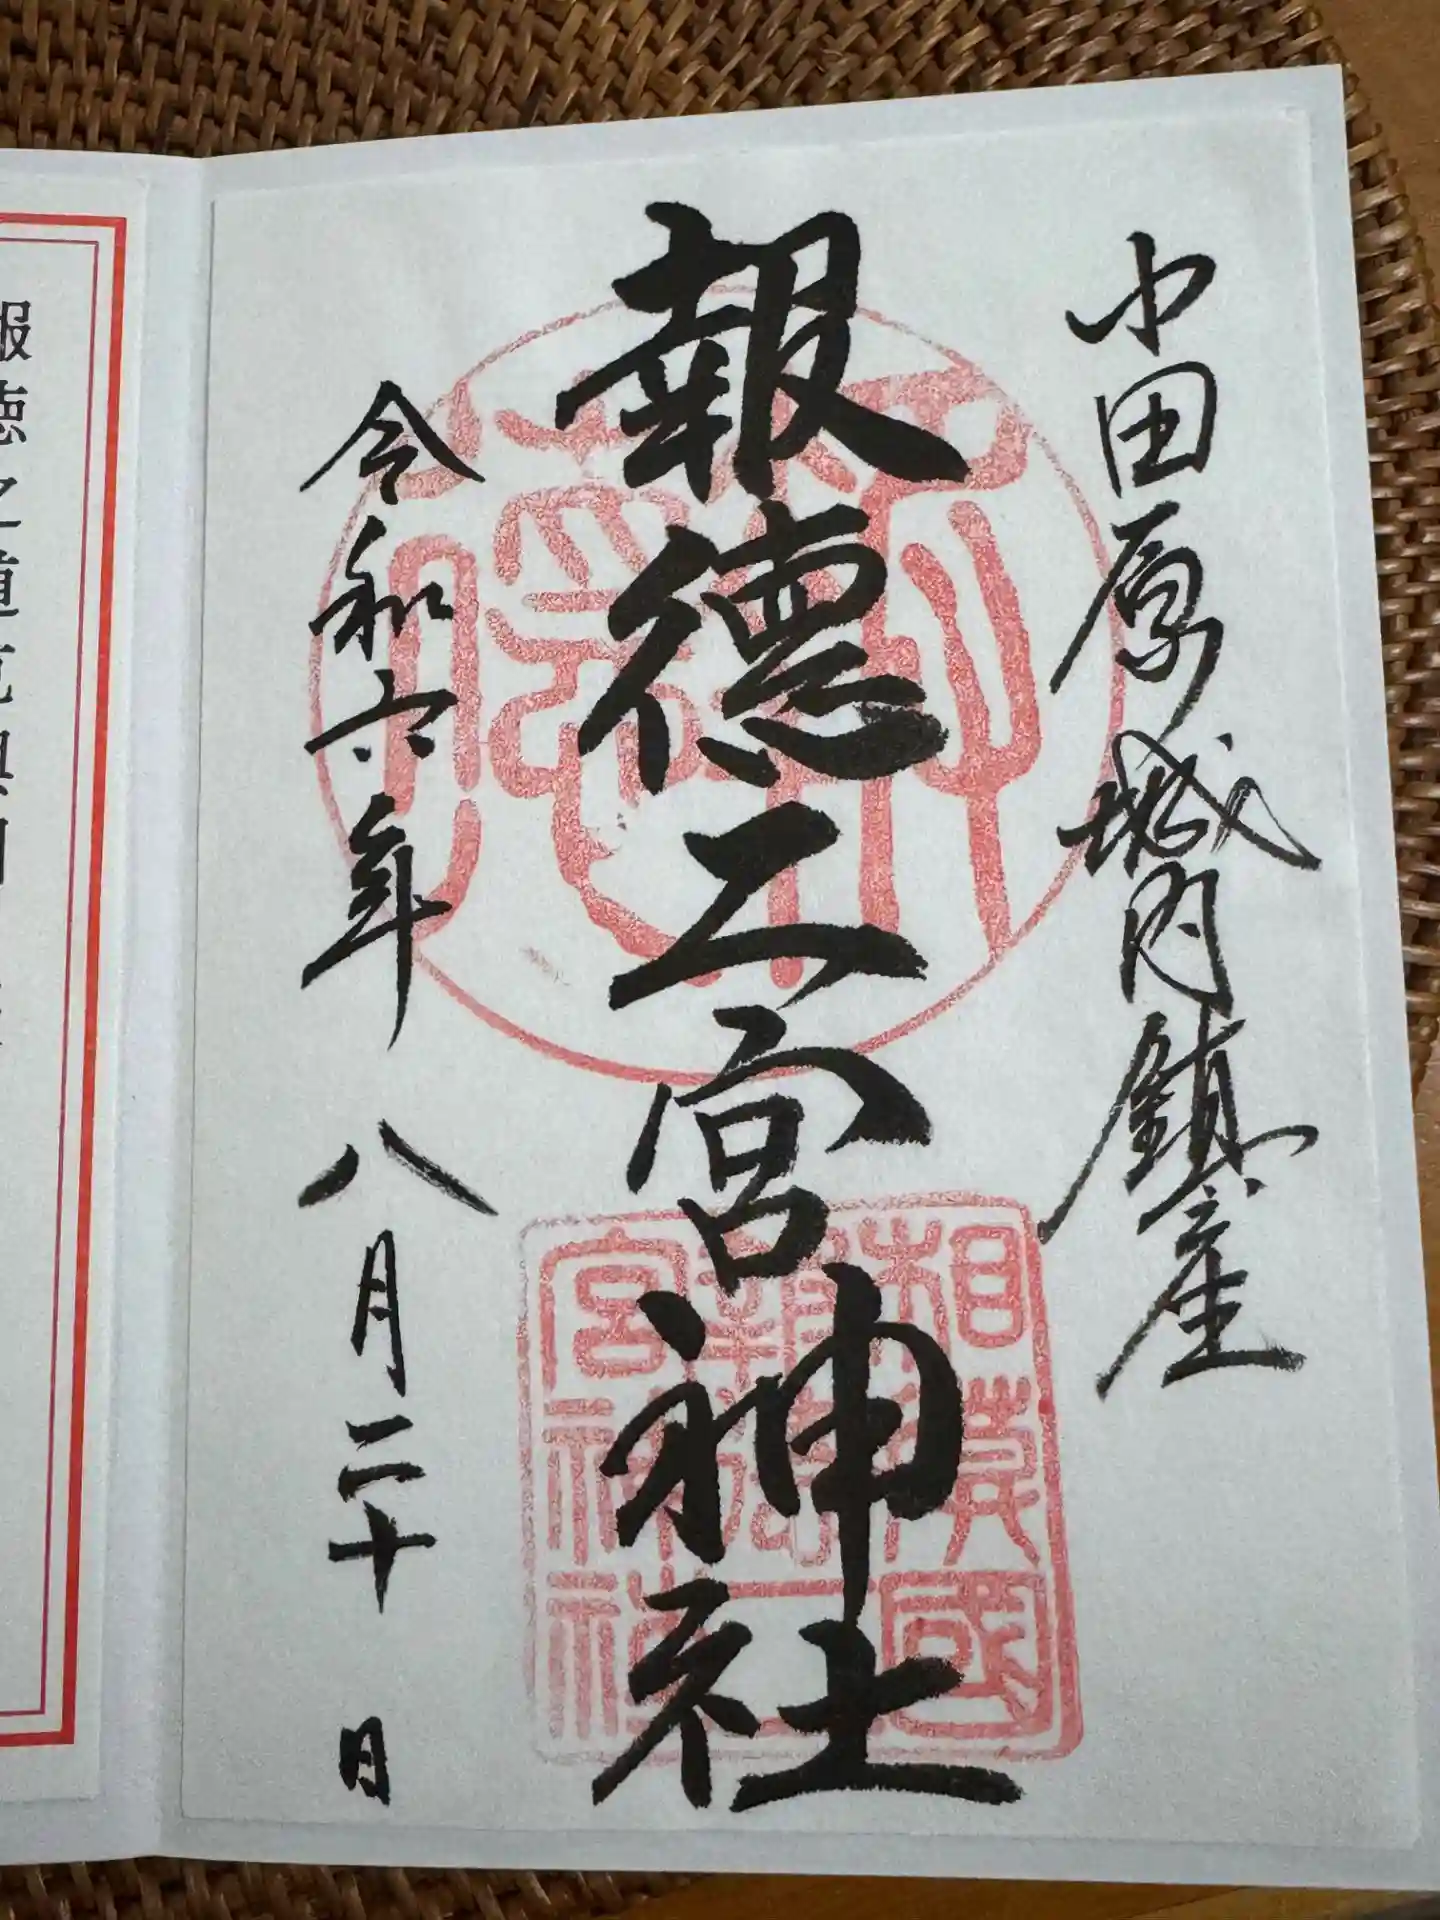 小田原城内鎮座
報徳二宮神社
令和六年 八月二十日
相模國
報徳二
宮神社
報徳之道